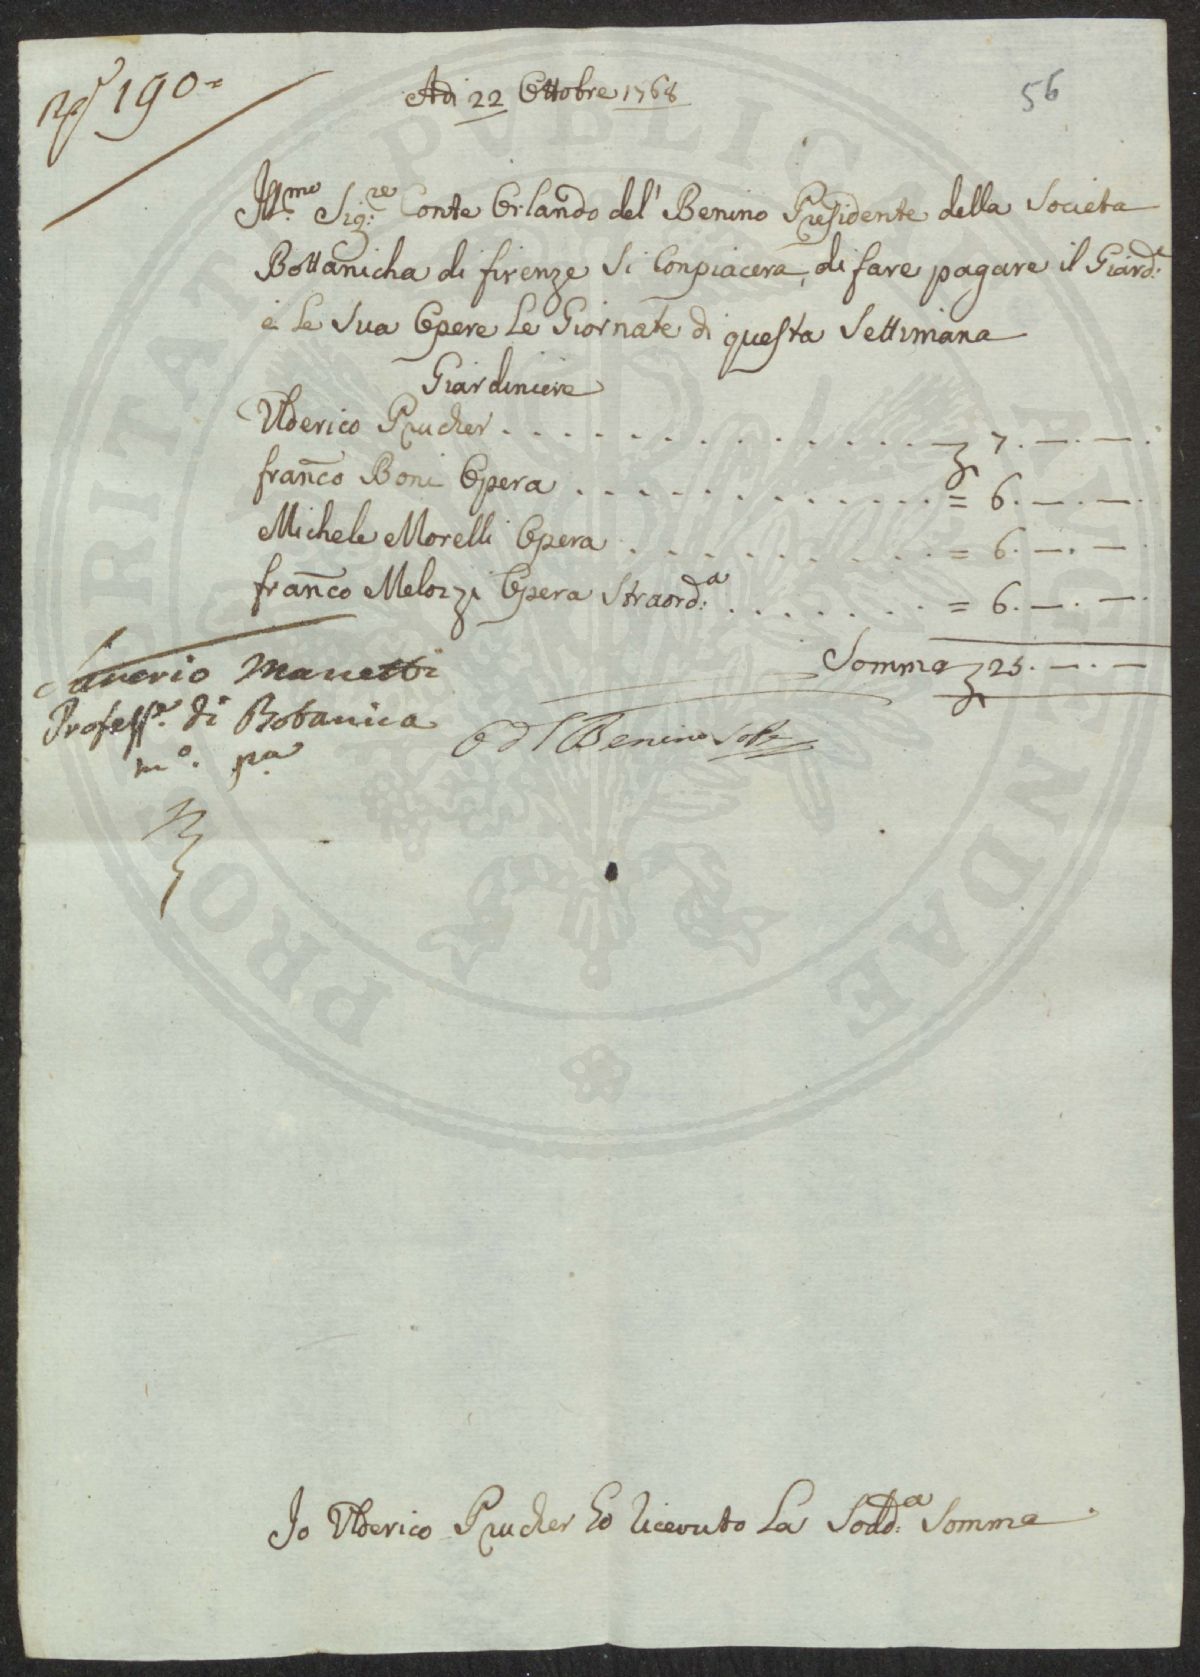 190
Adi 22 Ottobre 1768
56
Ill.mo Sig.re Conte Orlando del' Benino Presidente della Societa
Bottanicha di firenze Si Conpiacera, di fare pagare il Giard.e
e le Sua Opere Le Giornate di questa Settimana
Giardiniere
Ulderico Prucher . . . . . . . . . . . . . . 7. —. —.
franco Boni Opera . . . . . . . . . . . . = 6. —. —.
Michele Morelli Opera . . . . . . . . . . = 6. —. —.
franco Melozzi Opera Straord:a . . . . . . . = 6. —. —.
Somma 25. —. —
Saverio Manetti
Profess.e di Botanica
m.o pa
O d l Benino Sotto
Io Ulderico Prucher Ho Riceuto La Sodd:a Somma
PROSPERITATI PVBLICAE AVGENDAE